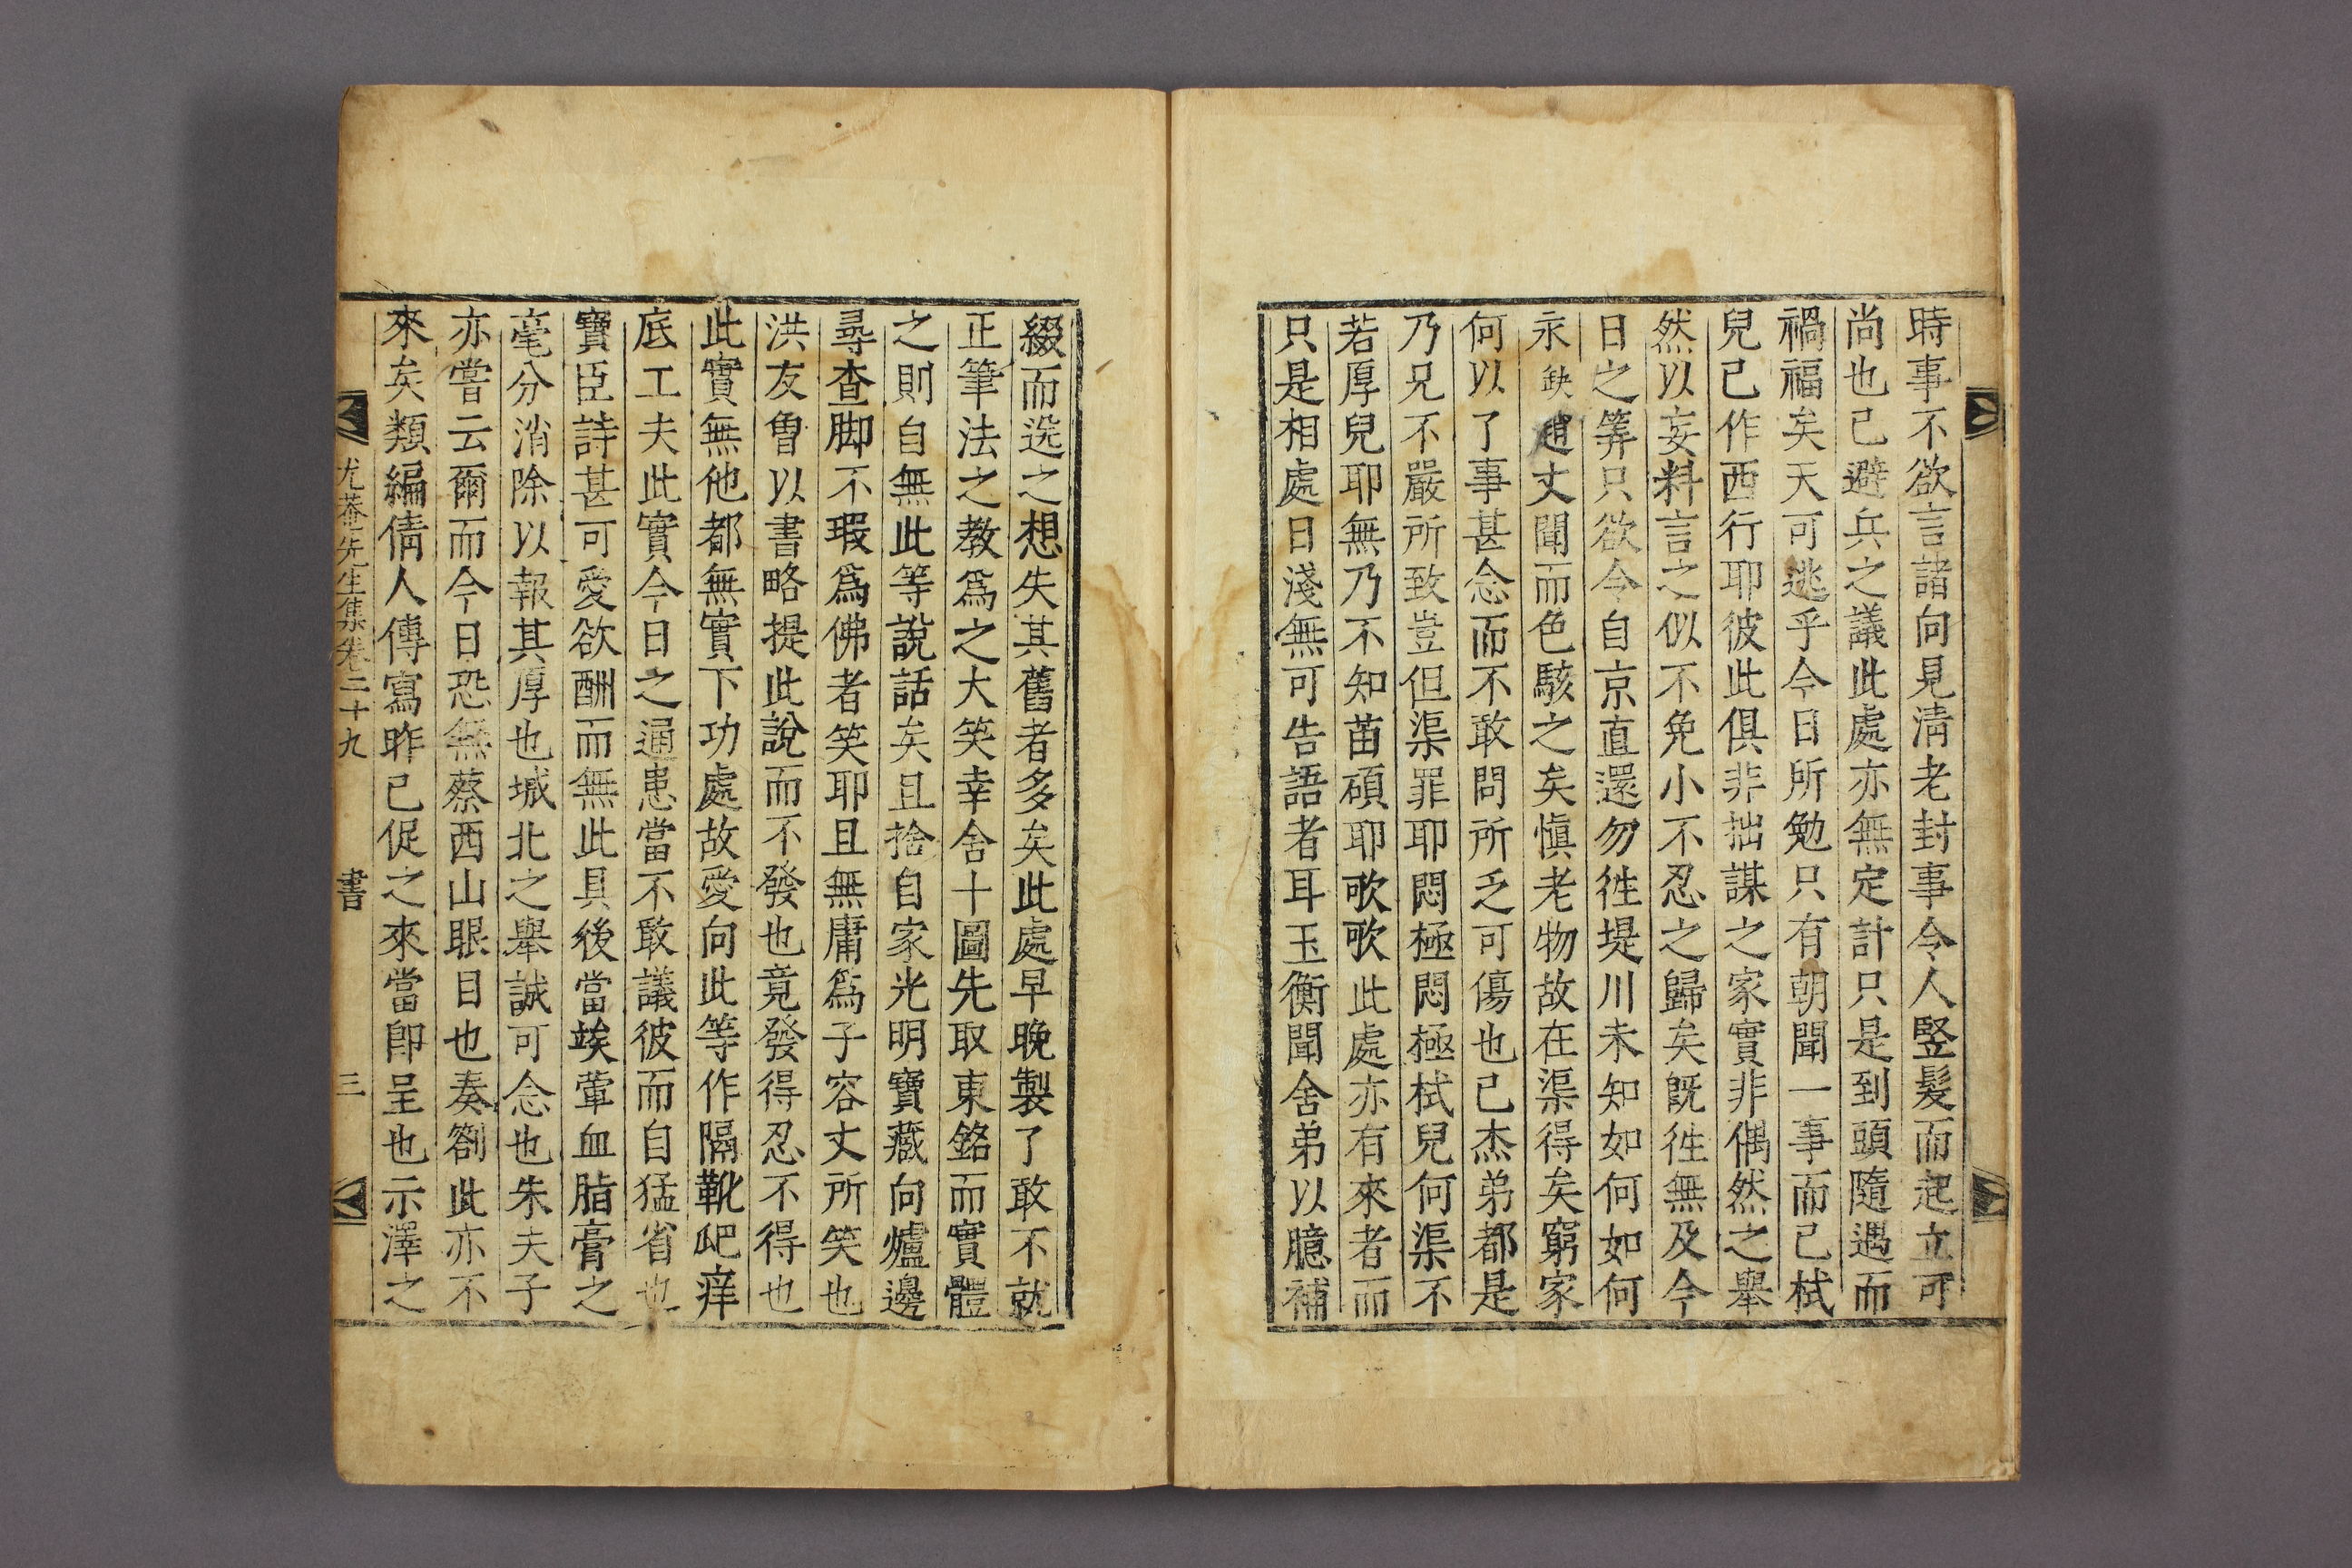 時事不欲言諸向見淸老封事令人竪髮而起立可
尚也已避兵之議此處亦無定計只是到頭隨遇而
禍福矣天可逃乎今日所勉只有朝聞一事而已栻
兒已作西行耶彼此俱非拙謀之家實非偶然之舉
然以妄料言之似不免小不忍之歸矣旣徃無及今
日之筭只欲令自京直還勿徃堤川未知如何如何
永缺趙丈聞而色駭之矣愼老物故在渠得矣窮家
何以了事甚念而不敢問所乏可傷也已杰弟都是
乃兄不嚴所致豈但渠罪耶悶極悶極栻兒何渠不
若厚兒耶無乃不知苗碩耶歌歌此處亦有來者而
只是相處日淺無可告語者耳玉衡聞舍弟以臆補
綴而选之想失其舊者多矣此處早晚製了敢不就
正筆法之教爲之大笑幸舍十圖先取東銘而實體
之則自無此等說話矣且捨自家光明寶藏向爐邊
尋查脚不瑕爲佛者笑耶且無庸爲子容丈所笑也
洪友曾以書略提此說而不發也竟發得忍不得也
此實無他都無實下功處故愛向此等作隔靴爬痒
底工夫此實今日之通患當不敢議彼而自猛省也
寶臣詩甚可愛欲酬而無此具後當竢葷血脂膏之
毫分消除以報其厚也城北之舉誠可念也朱夫子
亦嘗云爾而今日恐無蔡西山眼目也奏劄此亦不
來矣類編倩人傳寫昨已促之來當卽呈也示澤之
尤菴先生集卷二十九 書 三